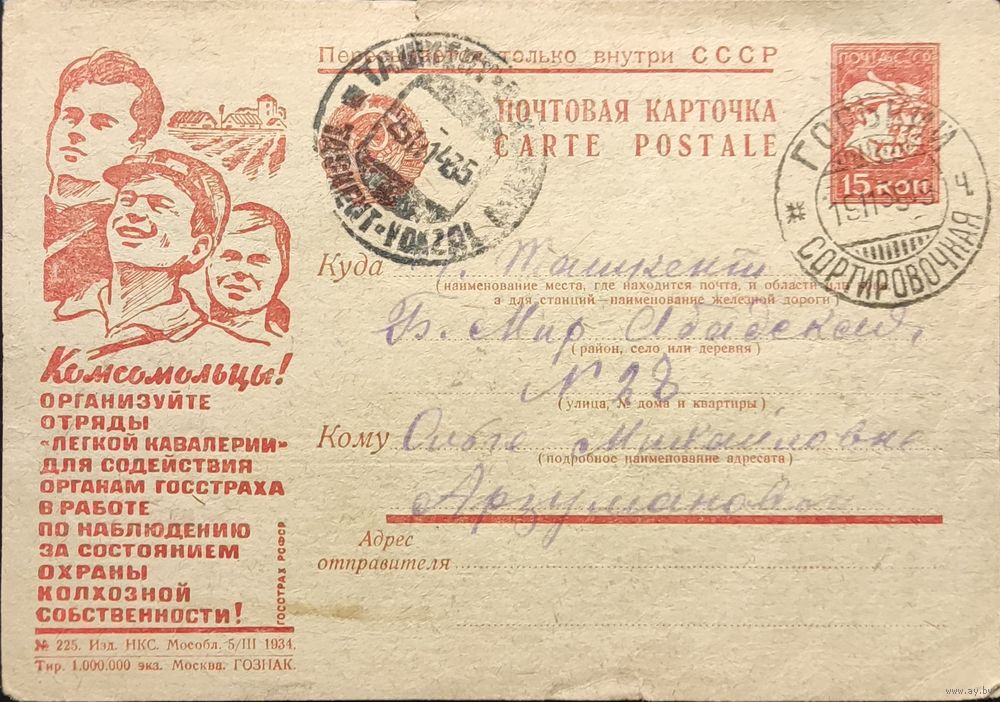 Пересылается только внутри СССР
ПОЧТОВАЯ КАРТОЧКА
CARTE POSTALE
ПОЧТА СССР
15 КОП
ГОРЬКИЙ
СОРТИРОВОЧНАЯ
TACHKENT-VOKZAL
Куда г. Ташкент
(наименование места, где находится почта, и области или края,
а для станций—наименование железной дороги)
Б. Мир Абадская,
(район, село или деревня)
N 28
(улица, № дома и квартиры)
Кому Ольге Михайловне
(подробное наименование адресата)
Арзумановой
Адрес
отправителя
Комсомольцы!
ОРГАНИЗУЙТЕ
ОТРЯДЫ
«ЛЕГКОЙ КАВАЛЕРИИ»
ДЛЯ СОДЕЙСТВИЯ
ОРГАНАМ ГОССТРАХА
В РАБОТЕ
ПО НАБЛЮДЕНИЮ
ЗА СОСТОЯНИЕМ
ОХРАНЫ
КОЛХОЗНОЙ
СОБСТВЕННОСТИ!
ГОССТРАХ РСФСР
№ 225. Изд. НКС. Мособл. 5/III 1934.
Тир. 1.000.000 экз. Москва. ГОЗНАК.
www.ay.by